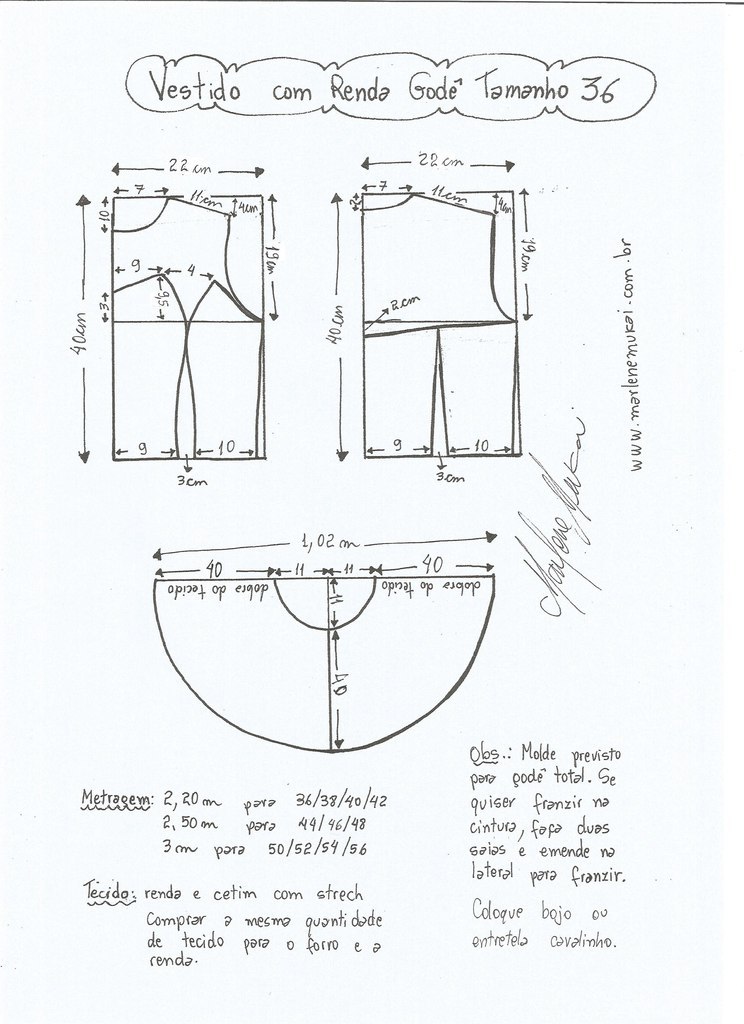 Vestido com Renda Godê Tamanho 36
22cm
7
11cm
4cm
10
19cm
9
4
3
9,5
40cm
9
10
3cm
22cm
7
11cm
4cm
2
19cm
2cm
40cm
9
10
3cm
www.marlenemukai.com.br
Marlene Mukai
1,02m
40
11
11
40
dobra do tecido
dobra do tecido
11
40
Metragem: 2,20m para 36/38/40/42
2,50m para 44/46/48
3m para 50/52/54/56
Tecido: renda e cetim com strech
Comprar a mesma quantidade
de tecido para o forro e a
renda.
Obs.: Molde previsto
para godê total. Se
quiser franzir na
cintura, faça duas
saias e emende na
lateral para franzir.
Coloque bojo ou
entretela cavalinho.